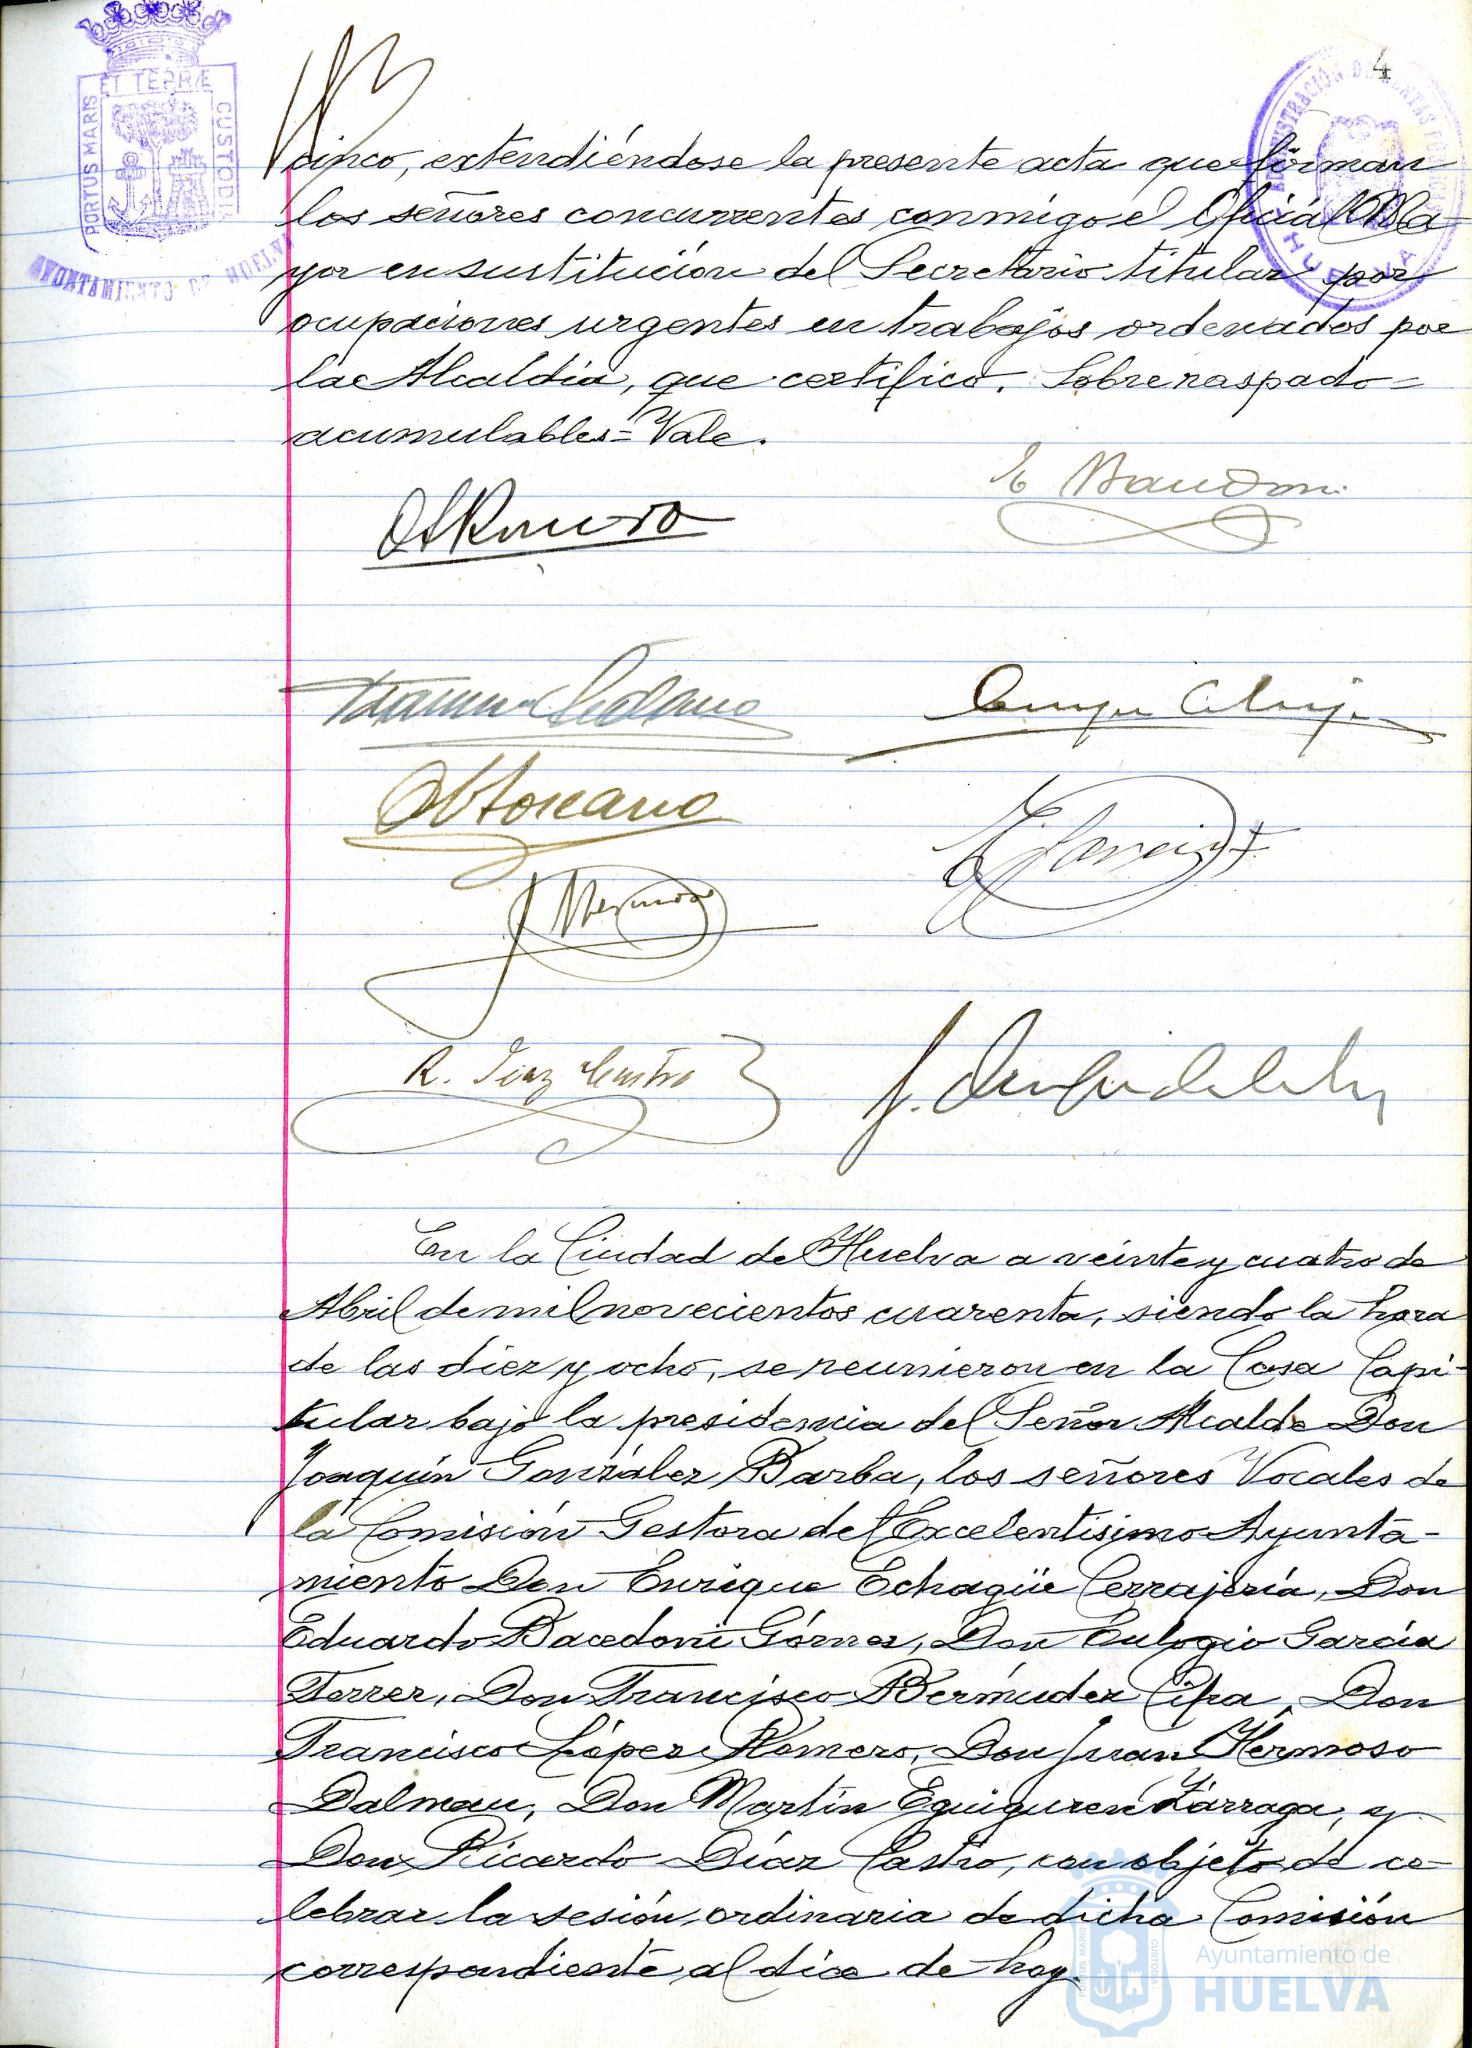 4
PORTUS MARIS
ET TERRÆ
CUSTODIA
AYUNTAMIENTO DE HUELVA
HUELVA
cinco, extendiéndose la presente acta que firman
los señores concurrentes conmigo el Oficial Ma-
yor en sustitución del Secretario titular por
ocupaciones urgentes en trabajos ordenados por
la Alcaldía, que certifico. Sobrerraspado=
acumulables=Vale.
R. Diaz Castro
En la Ciudad de Huelva a veinte y cuatro de
Abril de mil novecientos cuarenta, siendo la hora
de las diez y ocho, se reunieron en la Casa Capi-
tular bajo la presidencia del Señor Alcalde Don
Joaquín González Barba, los señores Vocales de
la Comisión Gestora del Excelentísimo Ayunta-
miento Don Enrique Echagüe Cerrajería, Don
Eduardo Bacedoni Gómez, Don Eulogio García
Ferrer, Don Francisco Bermúdez Cifra, Don
Francisco López Romero, Don Juan Hermoso
Dalmau, Don Martín Eguiguren Lárraga, y
Don Ricardo Díaz Castro, con objeto de ce-
lebrar la sesión ordinaria de dicha Comisión
correspondiente al día de hoy.
Ayuntamiento de
HUELVA